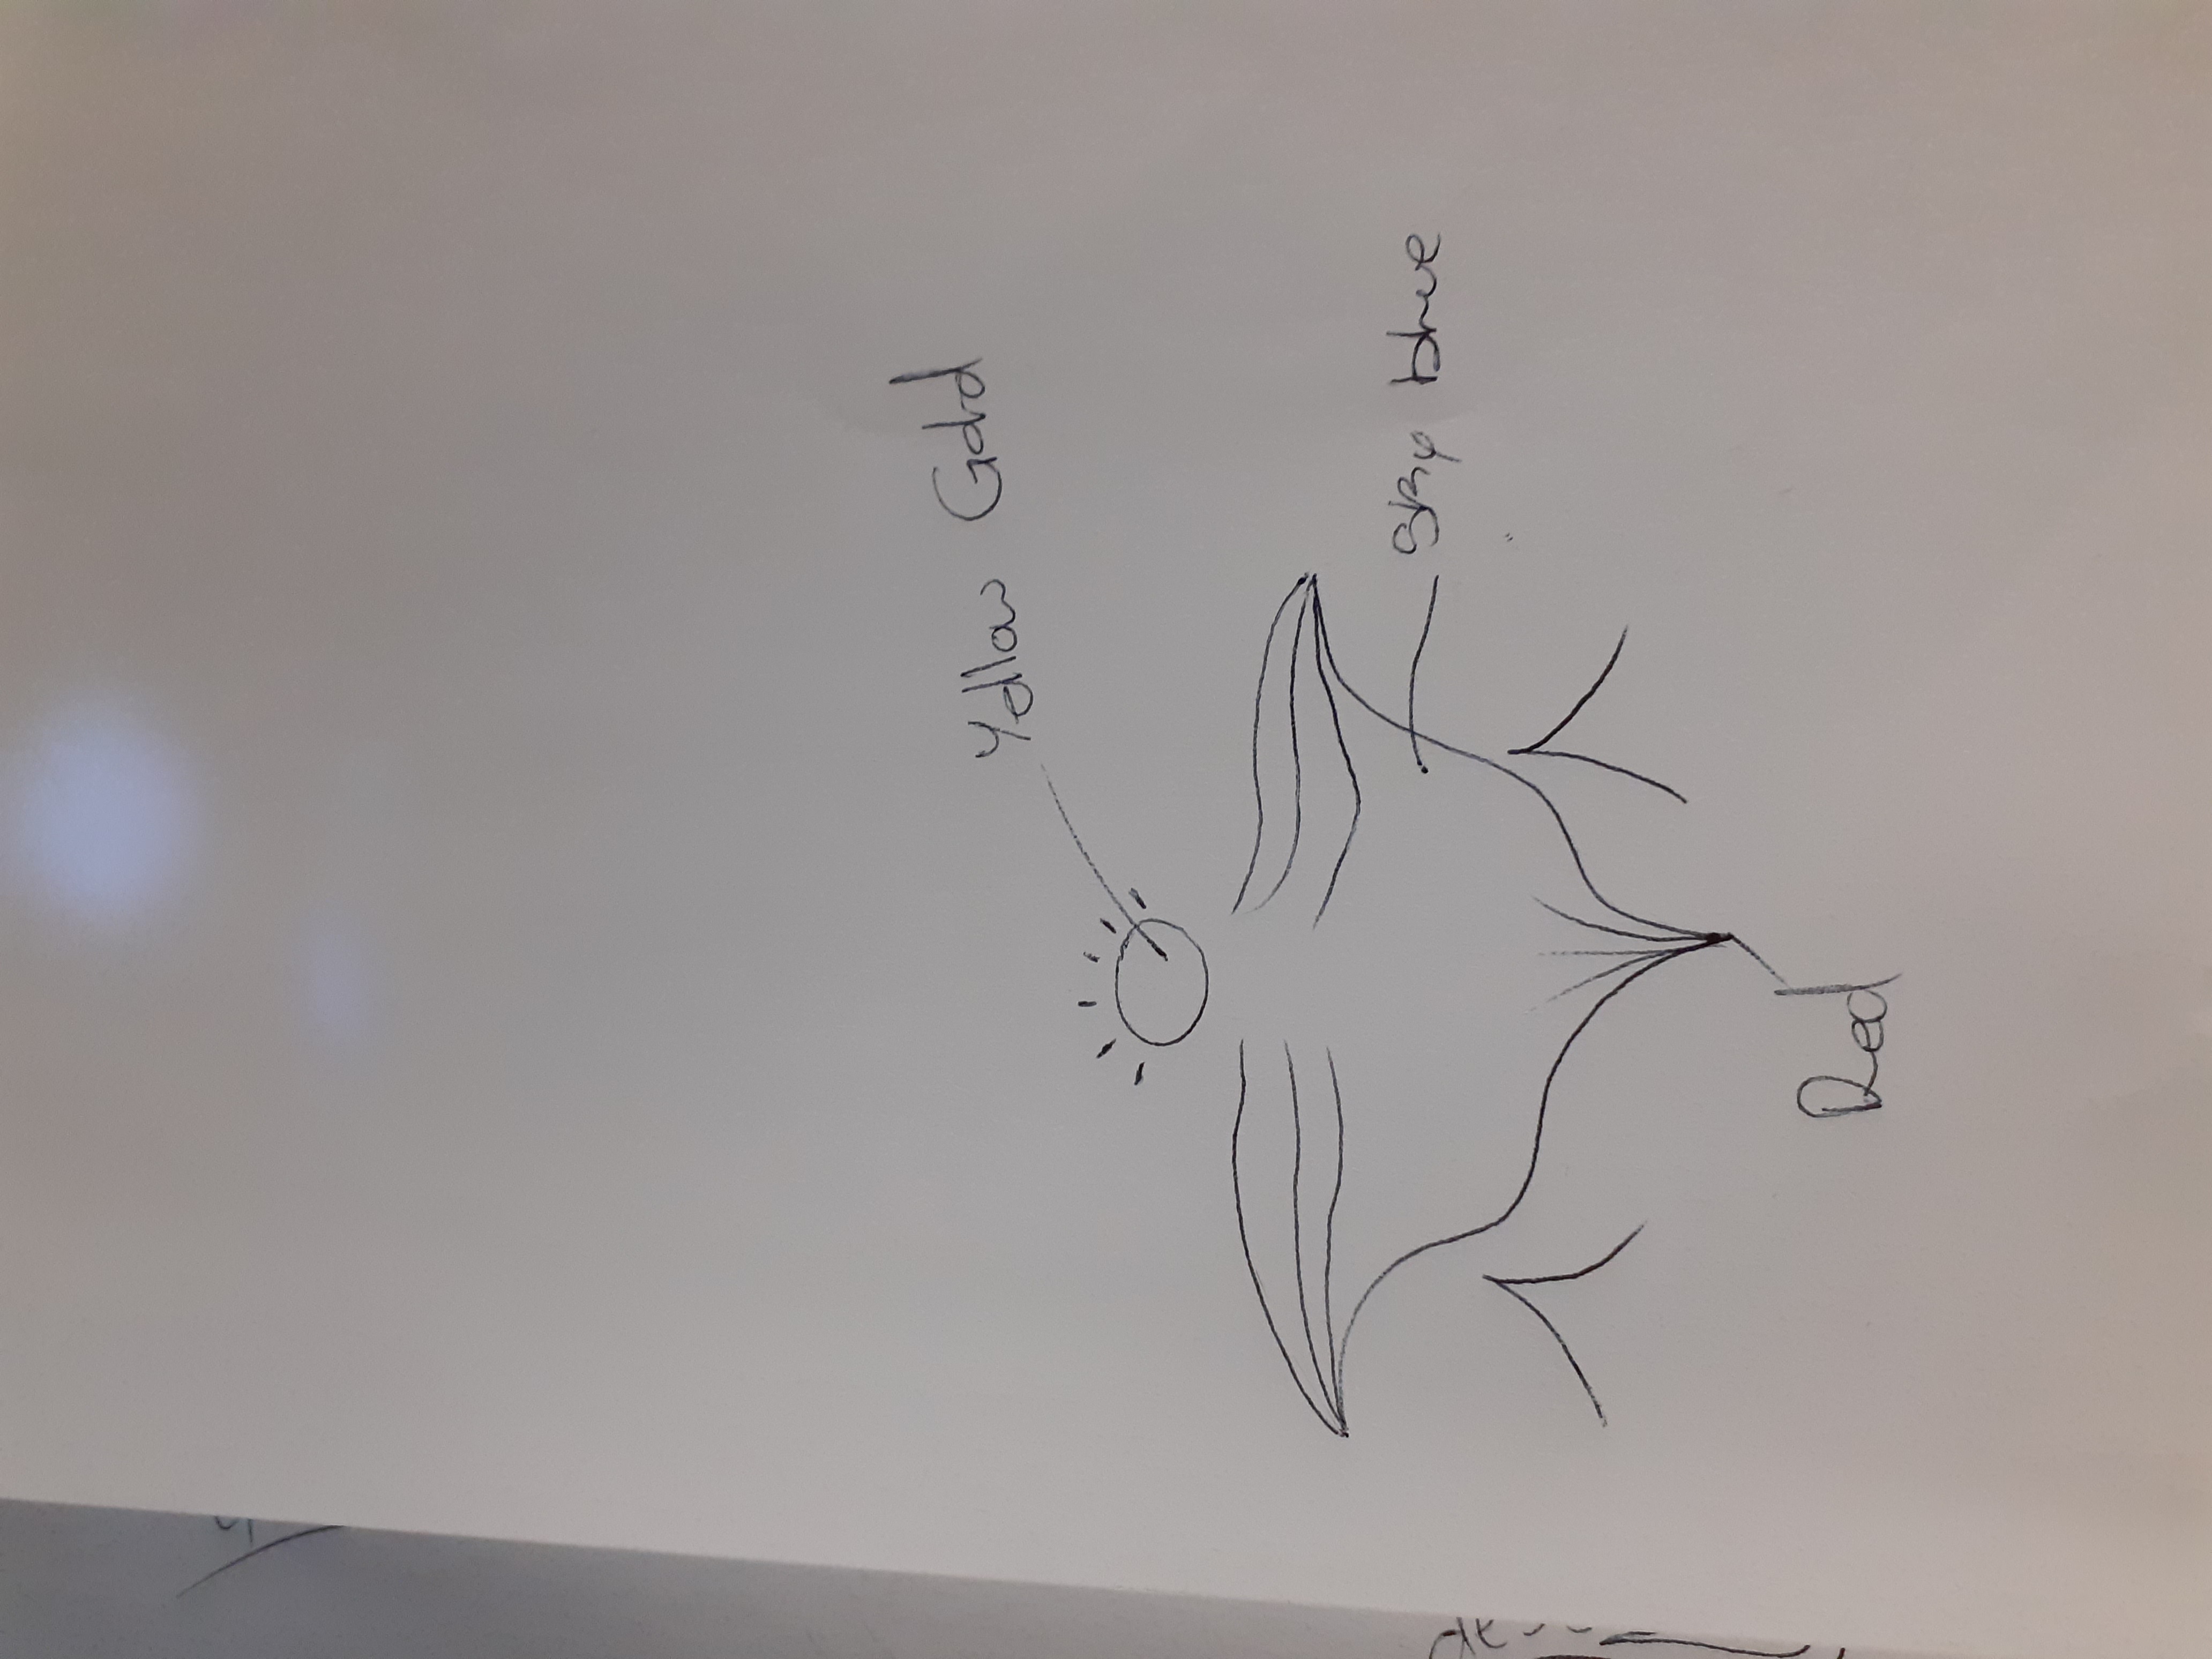 Yellow Gold
Sky blue
Red